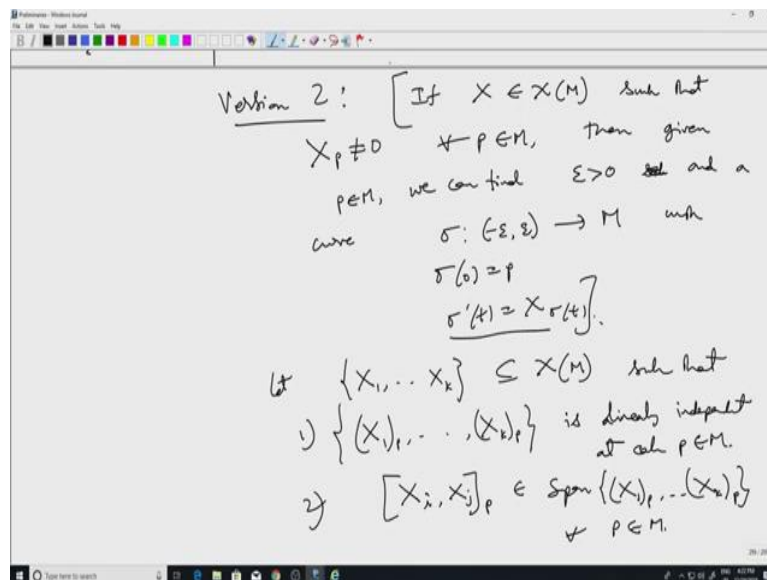 Preliminaries - Windows Journal
File Edit View Insert Actions Tools Help
Version 2 : [ If X ∈ X(M) such that
X_p ≠ 0 ∀ p ∈ M, then given
p ∈ M, we can find ε > 0 and a
curve σ : (-ε, ε) → M with
σ(0) = p
σ'(t) = X_σ(t) ].
Let {X_1, .. X_k} ⊆ X(M) such that
1) {(X_1)_p, . . . , (X_k)_p} is linearly independent
at each p ∈ M.
2) [X_i, X_j]_p ∈ Span {(X_1)_p, .. (X_k)_p}
∀ p ∈ M.
Type here to search